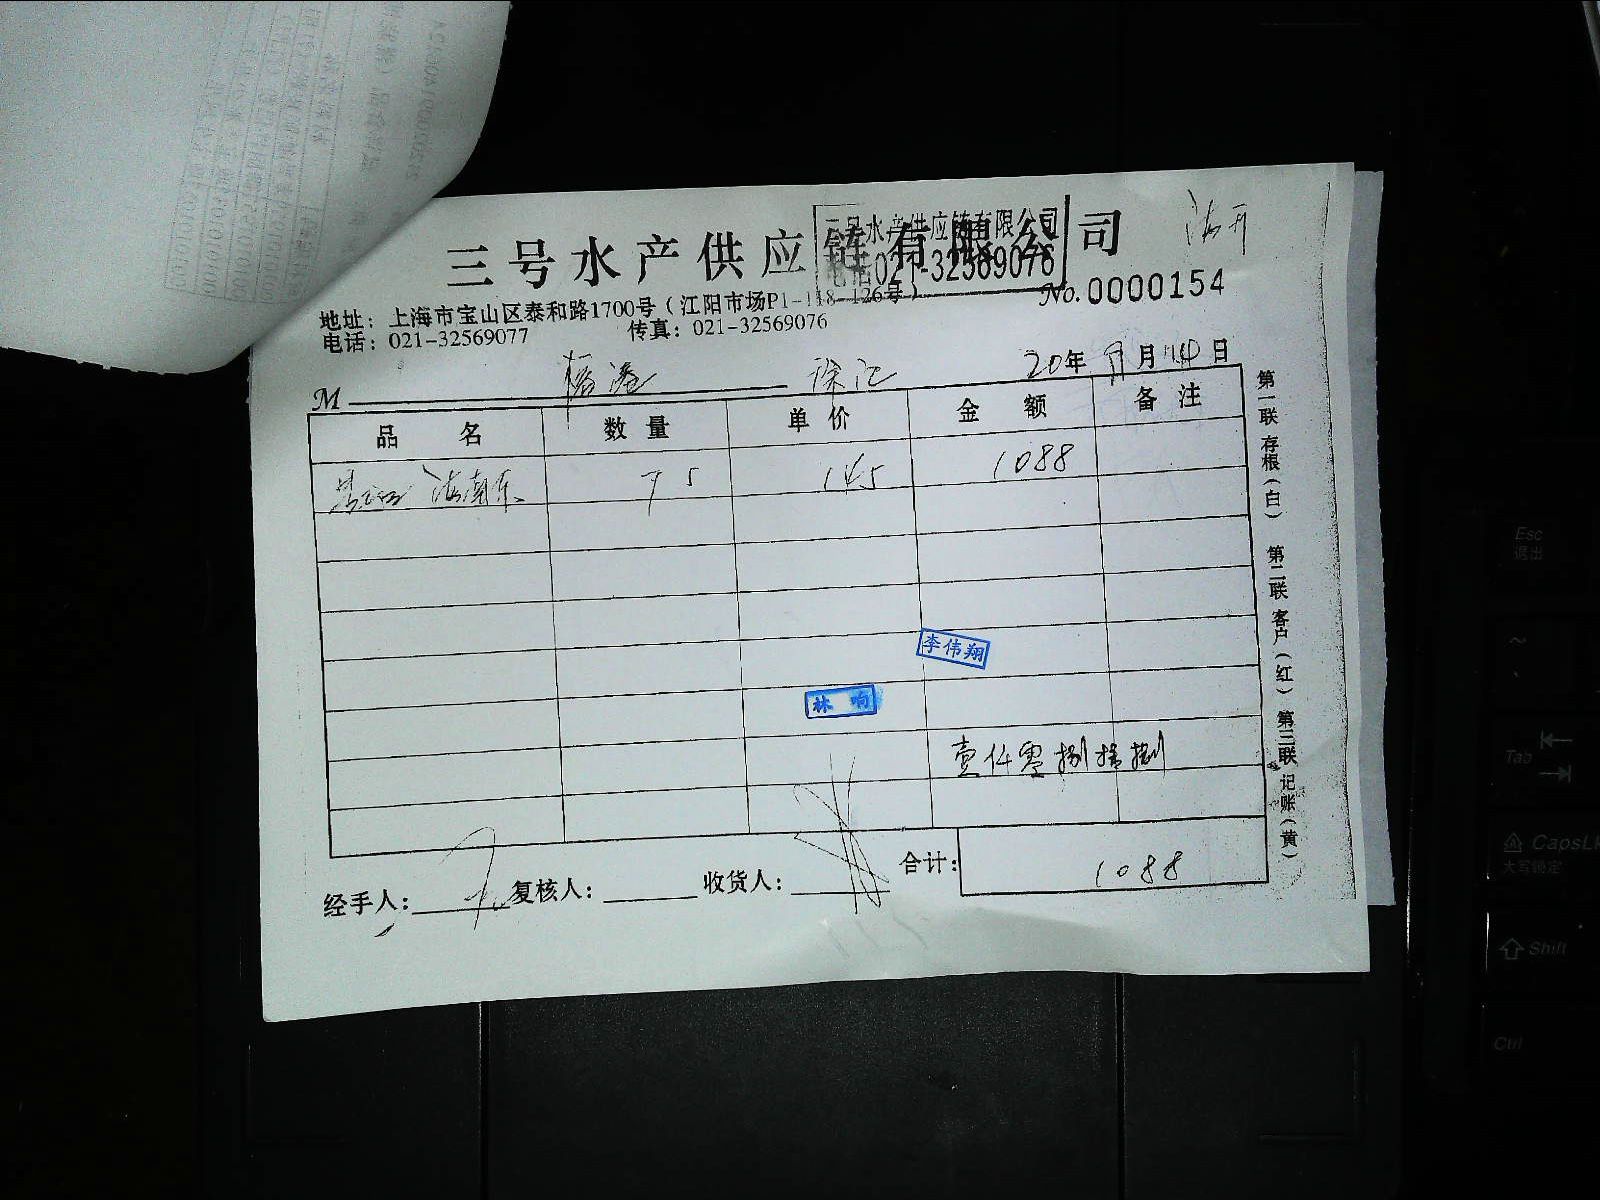 三号水产供应链有限公司
三号水产供应链有限公司
电话021-32569076
No.0000154
地址：上海市宝山区泰和路1700号（江阳市场P1-118-126号）
电话：021-32569077 传真：021-32569076
M 徐汇 20年 月 日
品名 数量 单价 金额 备注
海南东 75 145 1088
李伟翔
林响
壹仟零捌拾捌
合计： 1088
经手人： 复核人： 收货人：
第一联 存根（白） 第二联 客户（红） 第三联 记账（黄）
Esc
退出
Tab
CapsLk
大写锁定
Shift
Ctrl